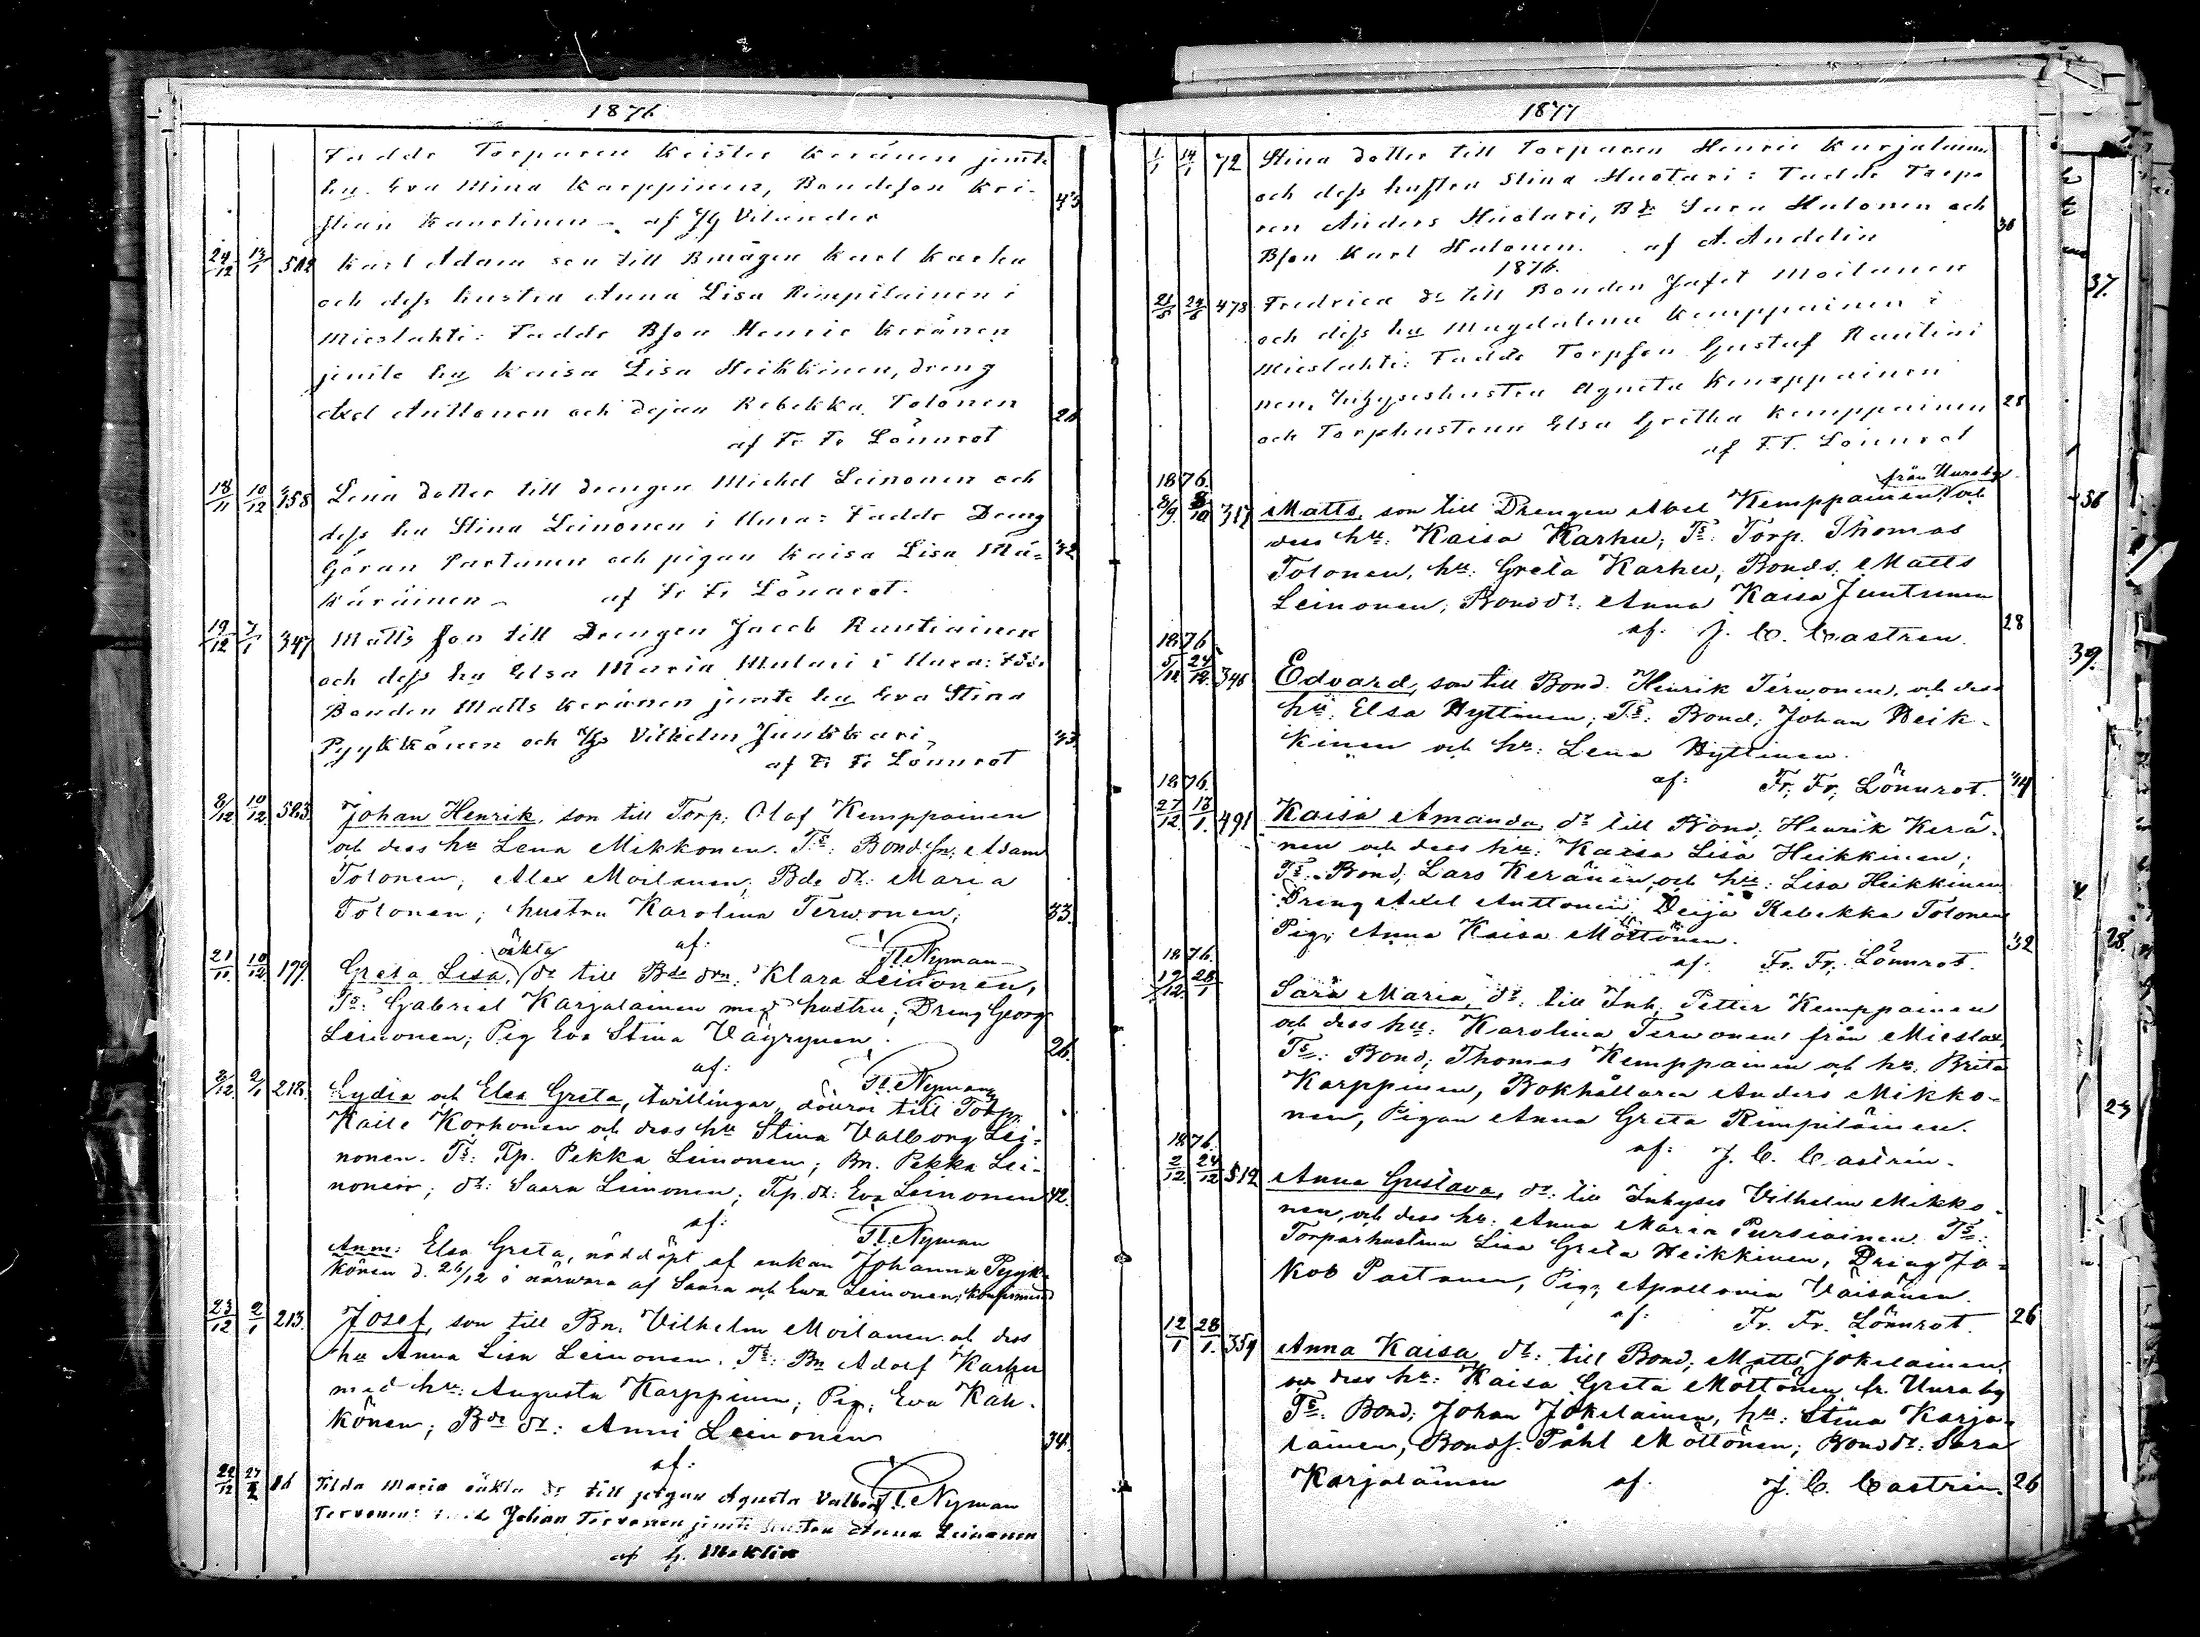 1876
Fadde Torparen Krister Keränen jemte
hu. Eva Mina Karppinen, Bondeson Kri-
stian Kanelinen af Vilander 43
24/12 13/1 502 Karl Adam son till Bmågen Karl Karhu
och dess hustru Anna Lisa Rimpiläinen i
Mieslahti: Fadde Bson Henric Keränen
jemte hu Kaisa Lisa Heikkinen, dreng
Axel Anttonen och dejan Rebekka Tolonen
af Fr Fr Lönnrot
18/11 10/12 358 Lena dotter till drengen Michel Leinonen och
dess hu Stina Leinonen i Uura: Fadde Dreng
Göran Partanen och pigan Kaisa Lisa Mä- 32
käräinen af Fr Fr Lönnrot.
19/12 7/1 347 Matts son till Drengen Jacob Rautiainen
och dess hu Elsa Maria Mulari i Uura:
Bonden Matts Keränen jemte hu Eva Stina
Pyykkönen och Vilhelm Juntikari 33
af Fr Fr Lönnrot
8/12 10/12 583 Johan Henrik, son till Torp. Olaf Kemppainen
och dess hu Lena Mikkonen. Ts: Bond.sn. Adam
Tolonen; Alex Moilanen; Bde dr: Maria
Tolonen; hustru Karolina Terwonen; 33
af: Fl. Nyman
oäkta
21/11 10/12 199 Greta Lisa, dr till Bde drn: Klara Leinonen,
Ts: Gabriel Karjalainen med hustru; Dreng Georg
Leinonen; Pig Eva Stina Väyrynen. 26.
af: Fl. Nyman
8/12 2/1 218 Lydia och Elsa Greta, twillingar, döttrar till Torp.
Korhonen och dess hu Stina Valborg Lei-
nonen. Ts: Tp. Pekka Leinonen; Bn. Pekka Lei-
nonen; dr: Saara Leinonen; Tp. dr: Eva Leinonen 42.
af: Fl. Nyman
Anm: Elsa Greta, nöddöpt af enkan Johanna Pyyk-
könen d. 26/12 i närwaro af Saara och Ewa Leinonen;
23/12 2/1 213 Josef, son till Bn. Vilhelm Moilanen och dess
hu Anna Lisa Leinonen. Ts: Bn Adolf Karhu
med hu: Augusta Karppinen; Pig. Eva Kah-
könen; Bde dr: Anni Leinonen 34.
af: Fl. Nyman
22/12 86 Tilda Maria oäkta dr till pigan Agusta Valborg
Tervonen: Johan Tervonen jemte hustru Anna Leinonen
af G. Meklin
1877
1/1 14/1 72 Stina dotter till Torparen Henric Karjalainen
och dess hustru Stina Huotari: Fadde Torpa-
ren Anders Huotari, Bdr Sara Hulonen och 30
Bson Karl Hulonen. af A. Andelin
1876.
478 Fredrica dr till Bonden Jafet Moilanen
och dess hu Magdalena Kemppainen i
Mieslahti: Fadde Torpson Gustaf Rautiai
nen, Inhyseshustru Agneta Kemppainen
och Torphustrun Elsa Gretha Kemppainen 28
af F.F. Lönnrot
1876. från Uuraby
8/9 8/10 317 Matts, son till Drengen Abel Kemppainen och
dess hu: Kaisa Karhu; Ts: Torp. Thomas
Tolonen, hu: Greta Karhu; Bonds. Matts
Leinonen; Bond dr: Anna Kaisa Juntunen
af: J. C. Castren. 28
1876.
5/12 24/12 346 Edvard, son till Bond. Henrik Terwonen, och dess
hu: Elsa Hyttinen; Ts: Bond; Johan Heik-
kinen och hu: Lena Hyttinen.
af: Fr. Fr. Lönnrot. 34
1876.
27/12 13/1 491 Kaisa Amanda, dr till Bond; Henrik Kerä-
nen och dess hu: Kaisa Lisa Heikkinen;
Ts: Bond; Lars Keränen, och hu: Lisa Heikkinen
Dreng Axel Anttonen, Deija Rebekka Tolonen
Pig; Anna Kaisa Möttönen. 32
af: Fr. Fr. Lönnrot.
1876.
19/12 28/1 Sara Maria, dr: till Inh. Petter Kemppainen
och dess hu: Karolina Terwonen från Mieslax,
Ts: Bond; Thomas Kemppainen och hu. Brita
Karppinen, Bokhållaren Anders Mikko-
nen, Pigan Anna Greta Rimpiläinen.
af: J. C. Castrén.
1876.
2/12 24/12 512 Anna Gustava, dr: till Inhyses Vilhelm Mikko-
nen, och dess hu: Anna Maria Pursiainen. Ts:
Torparhustrun Lisa Greta Heikkinen, Dreng Ja-
kob Partanen, Pig; Apollonia Väisänen.
af: Fr. Fr. Lönnrot. 26
12/1 28/1 359 Anna Kaisa, dr: till Bond; Matts Jokelainen
och dess hu: Kaisa Greta Möttönen fr. Uuraby
Ts: Bond; Johan Jokelainen, hu: Stina Karja-
lainen, Bonds. Påhl Möttönen; Bond dr: Sara
Karjaläinen af. J. C. Castrén. 26
37.
38
39.
28.
23